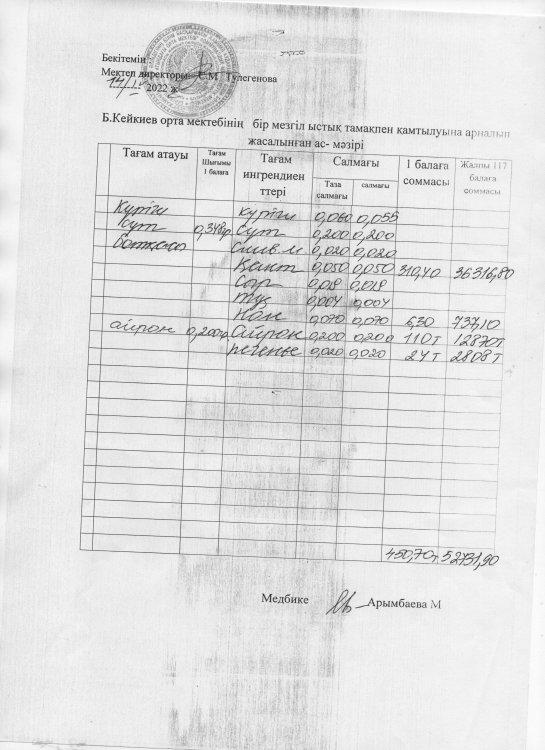 Бекітемін :
Мектеп директоры С.М Тулегенова
2022 ж
Б.Кейкиев орта мектебінің бір мезгіл ыстық тамақпен қамтылуына арналып
жасалынған ас- мәзірі
Тағам атауы Тағам Шығымы 1 балаға Тағам ингрендиен ттері Салмағы 1 балаға соммасы Жалпы 117 балаға соммасы
Таза салмағы салмағы
Күріш күріш 0,060 0,055
сүт 0,348гр сүт 0,200 0,200
ботқасы слив.м 0,020 0,020
Қант 0,050 0,050 310,40 36316,80
Сыр 0,018 0,018
тұз 0,004 0,004
Нан 0,070 0,070 6,30 737,10
айран 0,200гр Айран 0,200 0,200 110т 12870т
печенье 0,020 0,020 24т 2808т
450,70т 52731,90
Медбике Арымбаева М